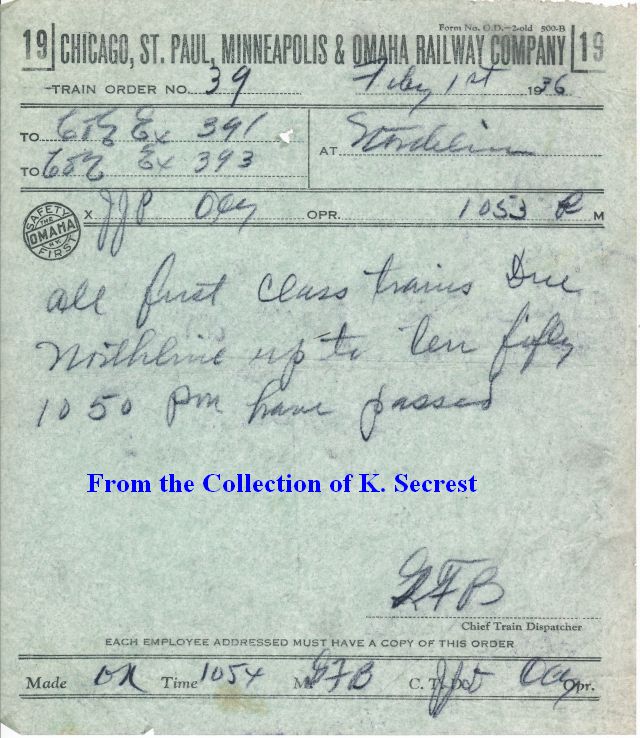 Form No. O.D.-2-old 500-B
19 CHICAGO, ST. PAUL, MINNEAPOLIS & OMAHA RAILWAY COMPANY 19
TRAIN ORDER NO. 39 Feby 1st 1936
TO C&E Ex 391
TO C&E Ex 393
AT Northline
SAFETY FIRST THE OMAHA RY
X JJP OPR. 1053 P M
all first class trains Due
Northline up to ten fifty
1050 pm have passed
From the Collection of K. Secrest
GFB
Chief Train Dispatcher
EACH EMPLOYEE ADDRESSED MUST HAVE A COPY OF THIS ORDER
Made OK Time 1054 M GFB C. T. D. Opr.